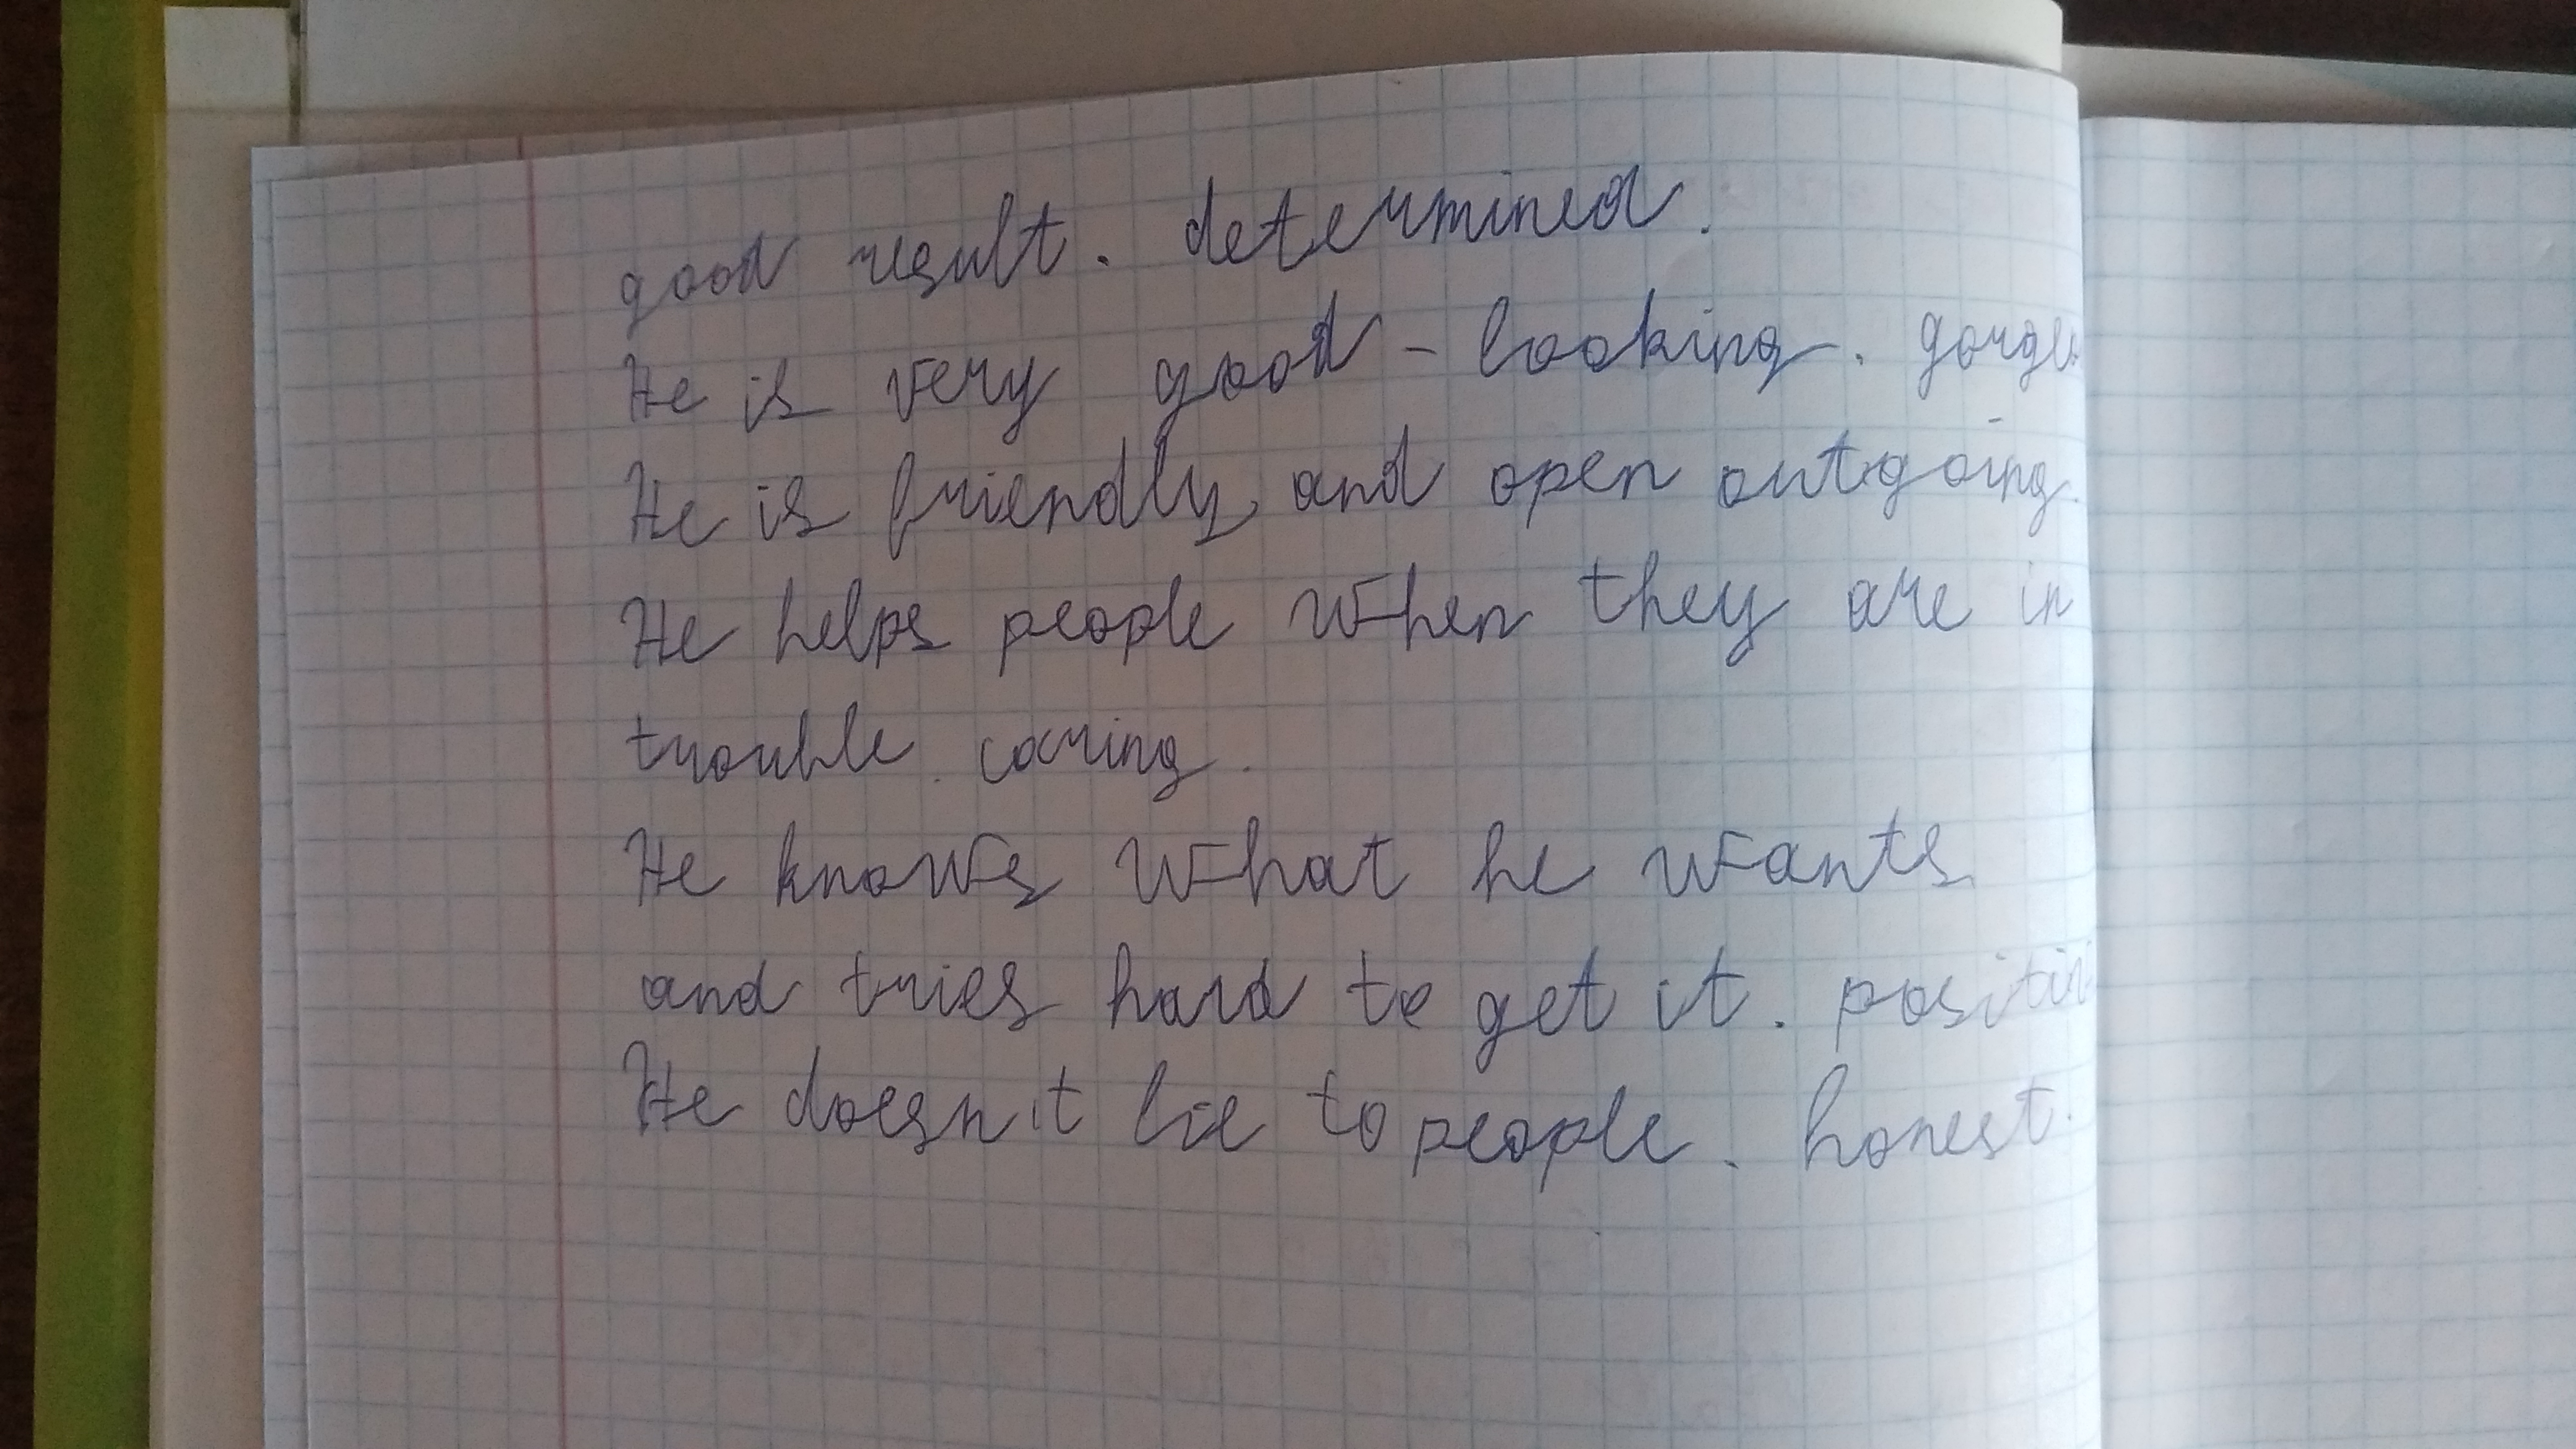 good result. determined.
He is very good - looking.
He is friendly and open outgoing.
He helps people when they are in
trouble. caring.
He knows what he wants
and tries hard to get it.
He doesn't lie to people. honest.